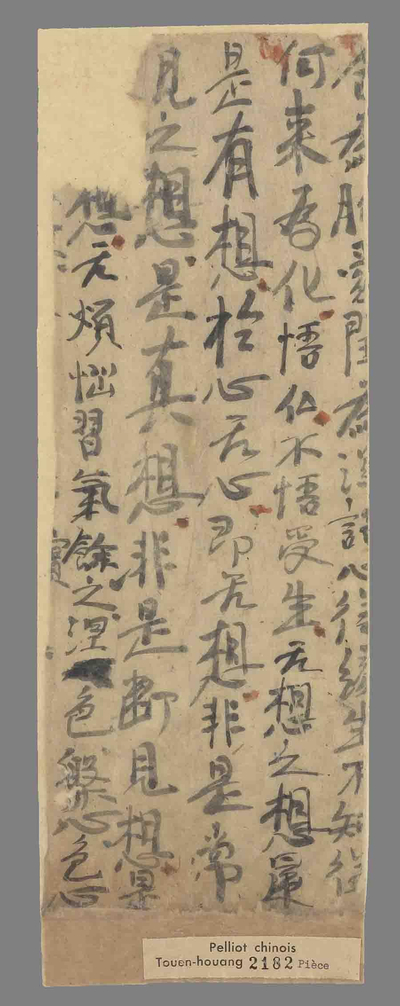 為生不知從
何来為化悟仏不悟受生无想之想
是有想於心无心即无想非是常
見之想是真想非是断見想是
无煩惱習氣餘之涅色槃心色心
Pelliot chinois
Touen-houang 2182 Pièce